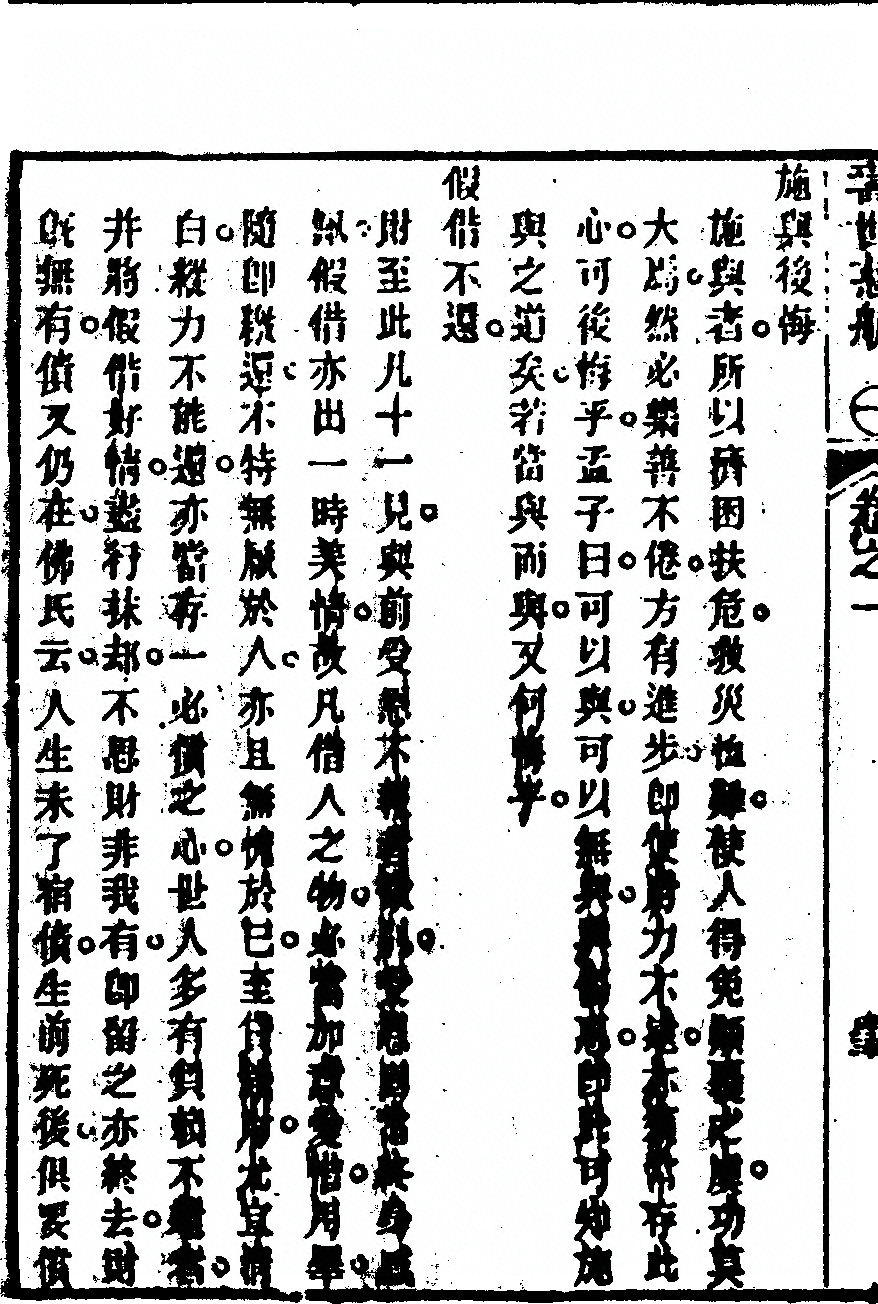 普世慈航　卷之一
施與後悔
施與者所以濟困扶危救災恤難使人得免顛覆之虞功莫
大焉然必樂善不倦方有進步即使財力不逮亦須常存此
心可後悔乎孟子曰可以與可以無與與傷惠即此可知施
與之道矣若當與而與又何悔乎
假借不還
財至此凡十一見與前受恩不報者微別受恩固當終身感
佩假借亦出一時美情故凡借人之物必當加意愛惜用畢
隨即繳還不特無厭於人亦且無愧於己至借錢財尤宜情
白縱力不能還亦當存一必償之心世人多有負賴不還者
并將假借好情盡行抹却不思財非我有即留之亦終去財
既無有債又仍在佛氏云人生未了宿債生前死後俱要償